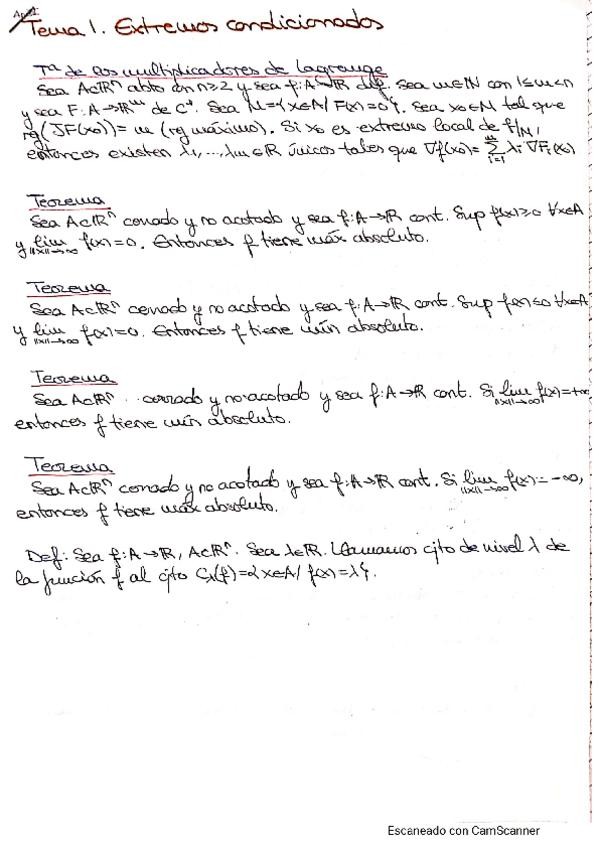 Tema 1. Extremos condicionados
Tª de los multiplicadores de Lagrange
Sea A⊂ℝⁿ abto con n≥2 y sea f:A→ℝ dif. Sea m∈ℕ con 1≤m<n
y sea F:A→ℝᵐ de C¹. Sea M={x∈A/ F(x)=0}. Sea x₀∈M tal que
rg(JF(x₀))=m (rg máximo). Si x₀ es extremo local de f/M,
entonces existen λ₁,...,λm∈ℝ únicos tales que ∇f(x₀)=∑ᵢ₌₁ᵐ λᵢ∇Fᵢ(x₀)
Teorema
Sea A⊂ℝⁿ cerrado y no acotado y sea f:A→ℝ cont. Sup f(x)≥0 ∀x∈A
y lim ||x||→∞ f(x)=0. Entonces f tiene máx absoluto.
Teorema
Sea A⊂ℝⁿ cerrado y no acotado y sea f:A→ℝ cont. Sup f(x)≤0 ∀x∈A
y lim ||x||→∞ f(x)=0. Entonces f tiene mín absoluto.
Teorema
Sea A⊂ℝⁿ cerrado y no acotado y sea f:A→ℝ cont. Si lim ||x||→∞ f(x)=+∞
entonces f tiene mín absoluto.
Teorema
Sea A⊂ℝⁿ cerrado y no acotado y sea f:A→ℝ cont. Si lim ||x||→∞ f(x)=-∞,
entonces f tiene máx absoluto.
Def: Sea f:A→ℝ, A⊂ℝⁿ. Sea λ∈ℝ. Llamamos cjto de nivel λ de
la función f al cjto Cλ(f)={x∈A/ f(x)=λ}.
Escaneado con CamScanner